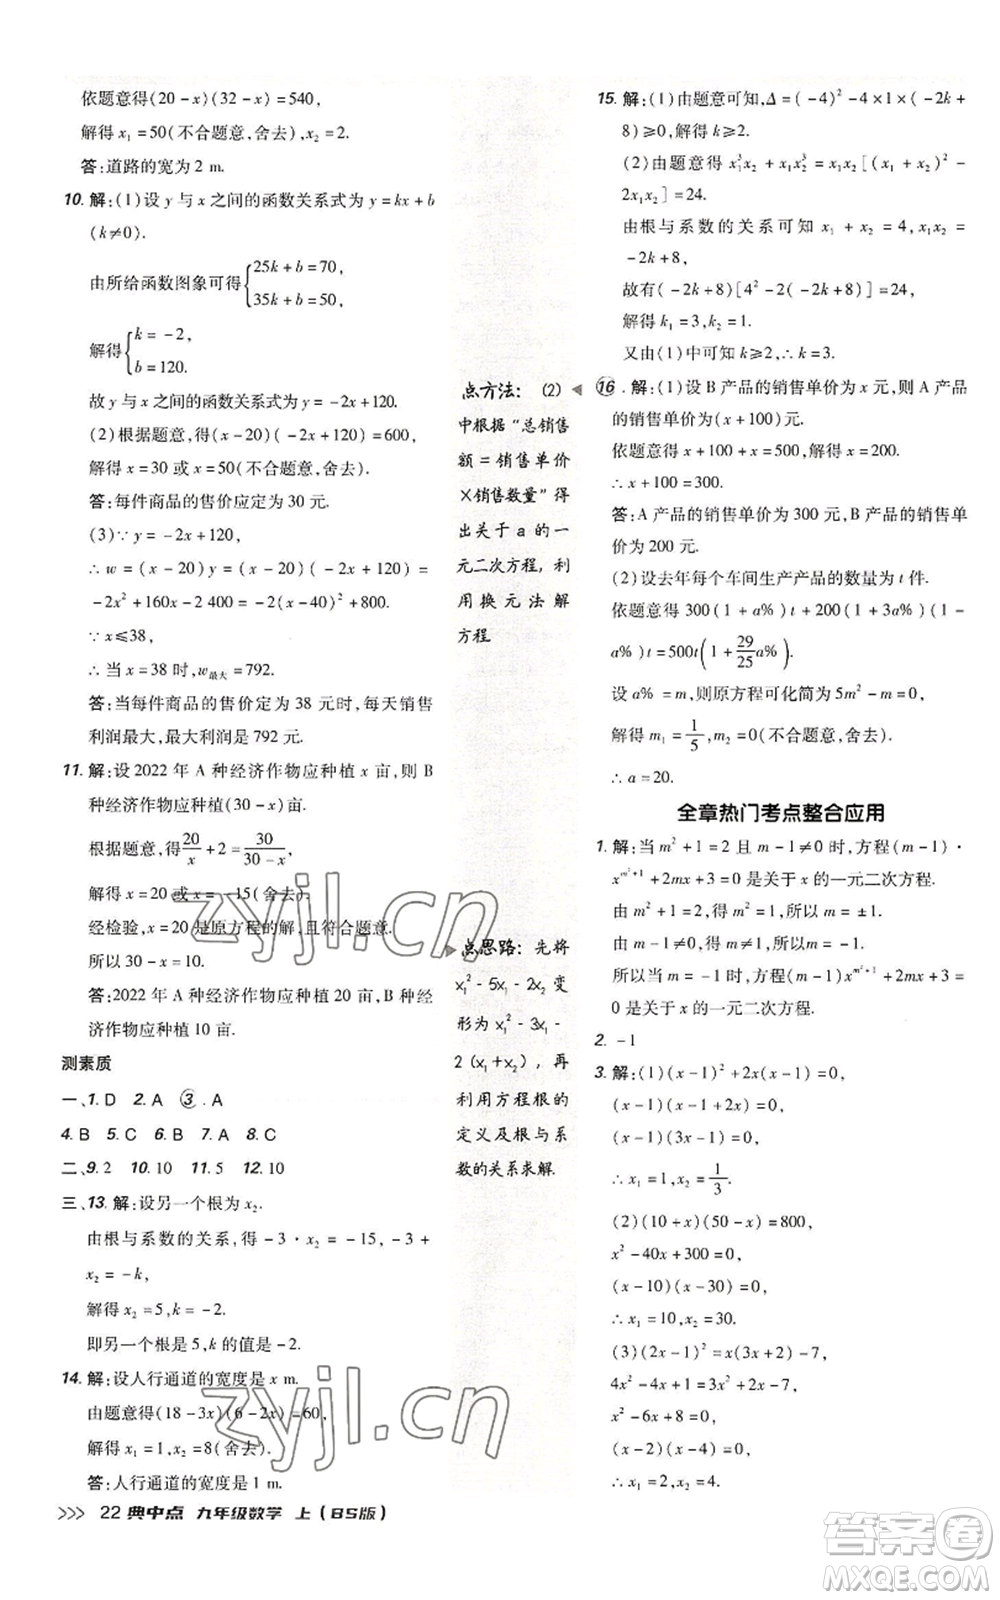 依题意得(20－x)(32－x)＝540,
解得 x₁＝50(不合题意,舍去),x₂＝2.
答:道路的宽为 2 m.
10. 解:(1)设 y 与 x 之间的函数关系式为 y＝kx＋b
(k≠0).
由所给函数图象可得{25k＋b＝70,
35k＋b＝50,
解得{k＝－2,
b＝120.
故 y 与 x 之间的函数关系式为 y＝－2x＋120.
(2)根据题意,得(x－20)(－2x＋120)＝600,
解得 x＝30 或 x＝50(不合题意,舍去).
答:每件商品的售价应定为 30 元.
(3)∵y＝－2x＋120,
∴w＝(x－20)y＝(x－20)(－2x＋120)＝
－2x²＋160x－2 400＝－2(x－40)²＋800,
∵x≤38,
∴当 x＝38 时,w最大＝792.
答:当每件商品的售价定为 38 元时,每天销售
利润最大,最大利润是 792 元.
11. 解:设 2022 年 A 种经济作物应种植 x 亩,则 B
种经济作物应种植(30－x)亩.
根据题意,得20/x＋2＝30/(30－x),
解得 x＝20 或 x＝－15(舍去).
经检验,x＝20 是原方程的解,且符合题意.
所以 30－x＝10.
答:2022 年 A 种经济作物应种植 20 亩,B 种经
济作物应种植 10 亩.
测素质
一、1. D 2. A ③. A
4. B 5. C 6. B 7. A 8. C
二、9. 2 10. 10 11. 5 12. 10
三、13. 解:设另一个根为 x₂.
由根与系数的关系,得－3·x₂＝－15,－3＋
x₂＝－k,
解得 x₂＝5,k＝－2.
即另一个根是 5,k 的值是－2.
14. 解:设人行通道的宽度是 x m.
由题意得(18－3x)(6－2x)＝60,
解得 x₁＝1,x₂＝8(舍去).
答:人行通道的宽度是 1 m.
点方法: (2)
中根据“总销售
额＝销售单价
×销售数量”得
出关于 a 的一
元二次方程,利
用换元法解
方程.
点思路: 先将
x₁²－5x₁－2x₂ 变
形为 x₁²－3x₁－
2(x₁＋x₂),再
利用方程根的
定义及根与系
数的关系求解.
15. 解:(1)由题意可知,Δ＝(－4)²－4×1×(－2k＋
8)≥0,解得 k≥2.
(2)由题意得 x₁³x₂＋x₁x₂³＝x₁x₂[(x₁＋x₂)²－
2x₁x₂]＝24.
由根与系数的关系可知 x₁＋x₂＝4,x₁x₂＝
－2k＋8,
故有(－2k＋8)[4²－2(－2k＋8)]＝24,
解得 k₁＝3,k₂＝1.
又由(1)中可知 k≥2,∴k＝3.
⑯. 解:(1)设 B 产品的销售单价为 x 元,则 A 产品
的销售单价为(x＋100)元.
依题意得 x＋100＋x＝500,解得 x＝200.
∴x＋100＝300.
答:A 产品的销售单价为 300 元,B 产品的销售单
价为 200 元.
(2)设去年每个车间生产产品的数量为 t 件.
依题意得 300(1＋a%)t＋200(1＋3a%)(1－
a%)t＝500t(1＋29/25a%).
设 a%＝m,则原方程可化简为 5m²－m＝0,
解得 m₁＝1/5,m₂＝0(不合题意,舍去).
∴a＝20.
全章热门考点整合应用
1. 解:当 m²＋1＝2 且 m－1≠0 时,方程(m－1)·
x^(m²＋1)＋2mx＋3＝0 是关于 x 的一元二次方程.
由 m²＋1＝2,得 m²＝1,所以 m＝±1.
由 m－1≠0,得 m≠1,所以 m＝－1.
所以当 m＝－1 时,方程(m－1)x^(m²＋1)＋2mx＋3＝
0 是关于 x 的一元二次方程.
2. －1
3. 解:(1)(x－1)²＋2x(x－1)＝0,
(x－1)(x－1＋2x)＝0,
(x－1)(3x－1)＝0,
∴x₁＝1,x₂＝1/3.
(2)(10＋x)(50－x)＝800,
x²－40x＋300＝0,
(x－10)(x－30)＝0,
∴x₁＝10,x₂＝30.
(3)(2x－1)²＝x(3x＋2)－7,
4x²－4x＋1＝3x²＋2x－7,
x²－6x＋8＝0,
(x－2)(x－4)＝0,
∴x₁＝2,x₂＝4.
>>> 22 典中点 九年级数学 上(BS版)
zyjl.cn
zyjl.cn
答案圈
MXQE.COM